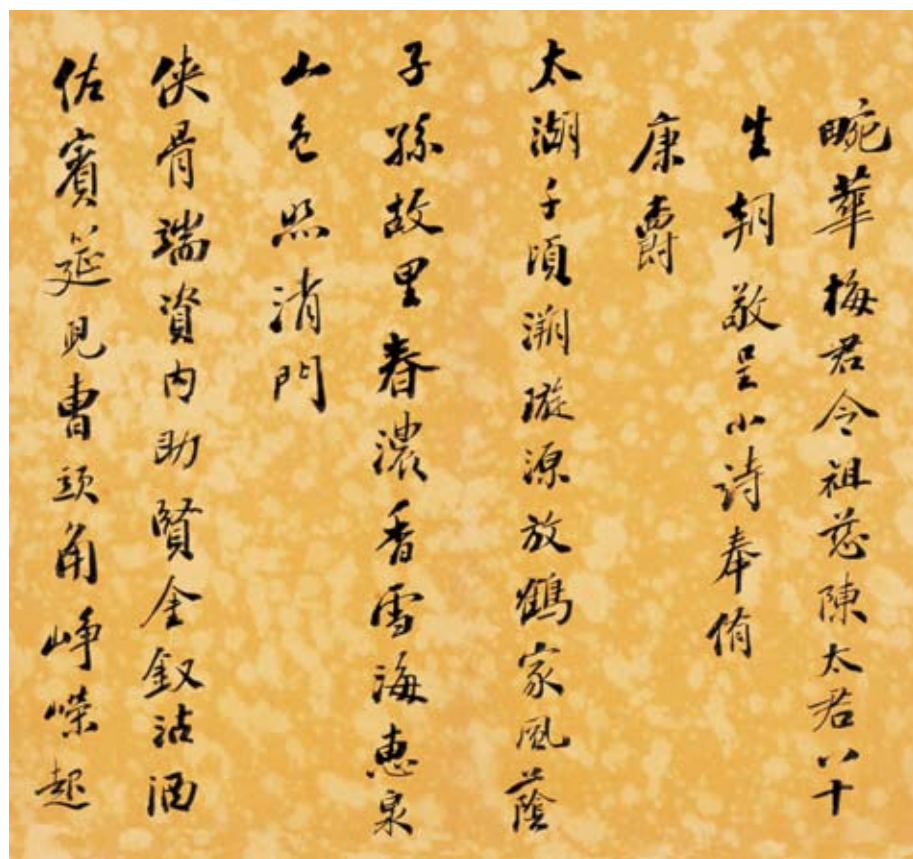 畹華梅君令祖慈陳太君八十
生朝敬呈小詩奉侑
康爵
太湖千頃溯璇源放鶴家風蔭
子孫故里春濃香雪海惠泉
山色照清門
俠骨端資內助賢金釵沽酒
佐賓筵兒曹頭角崢嶸起